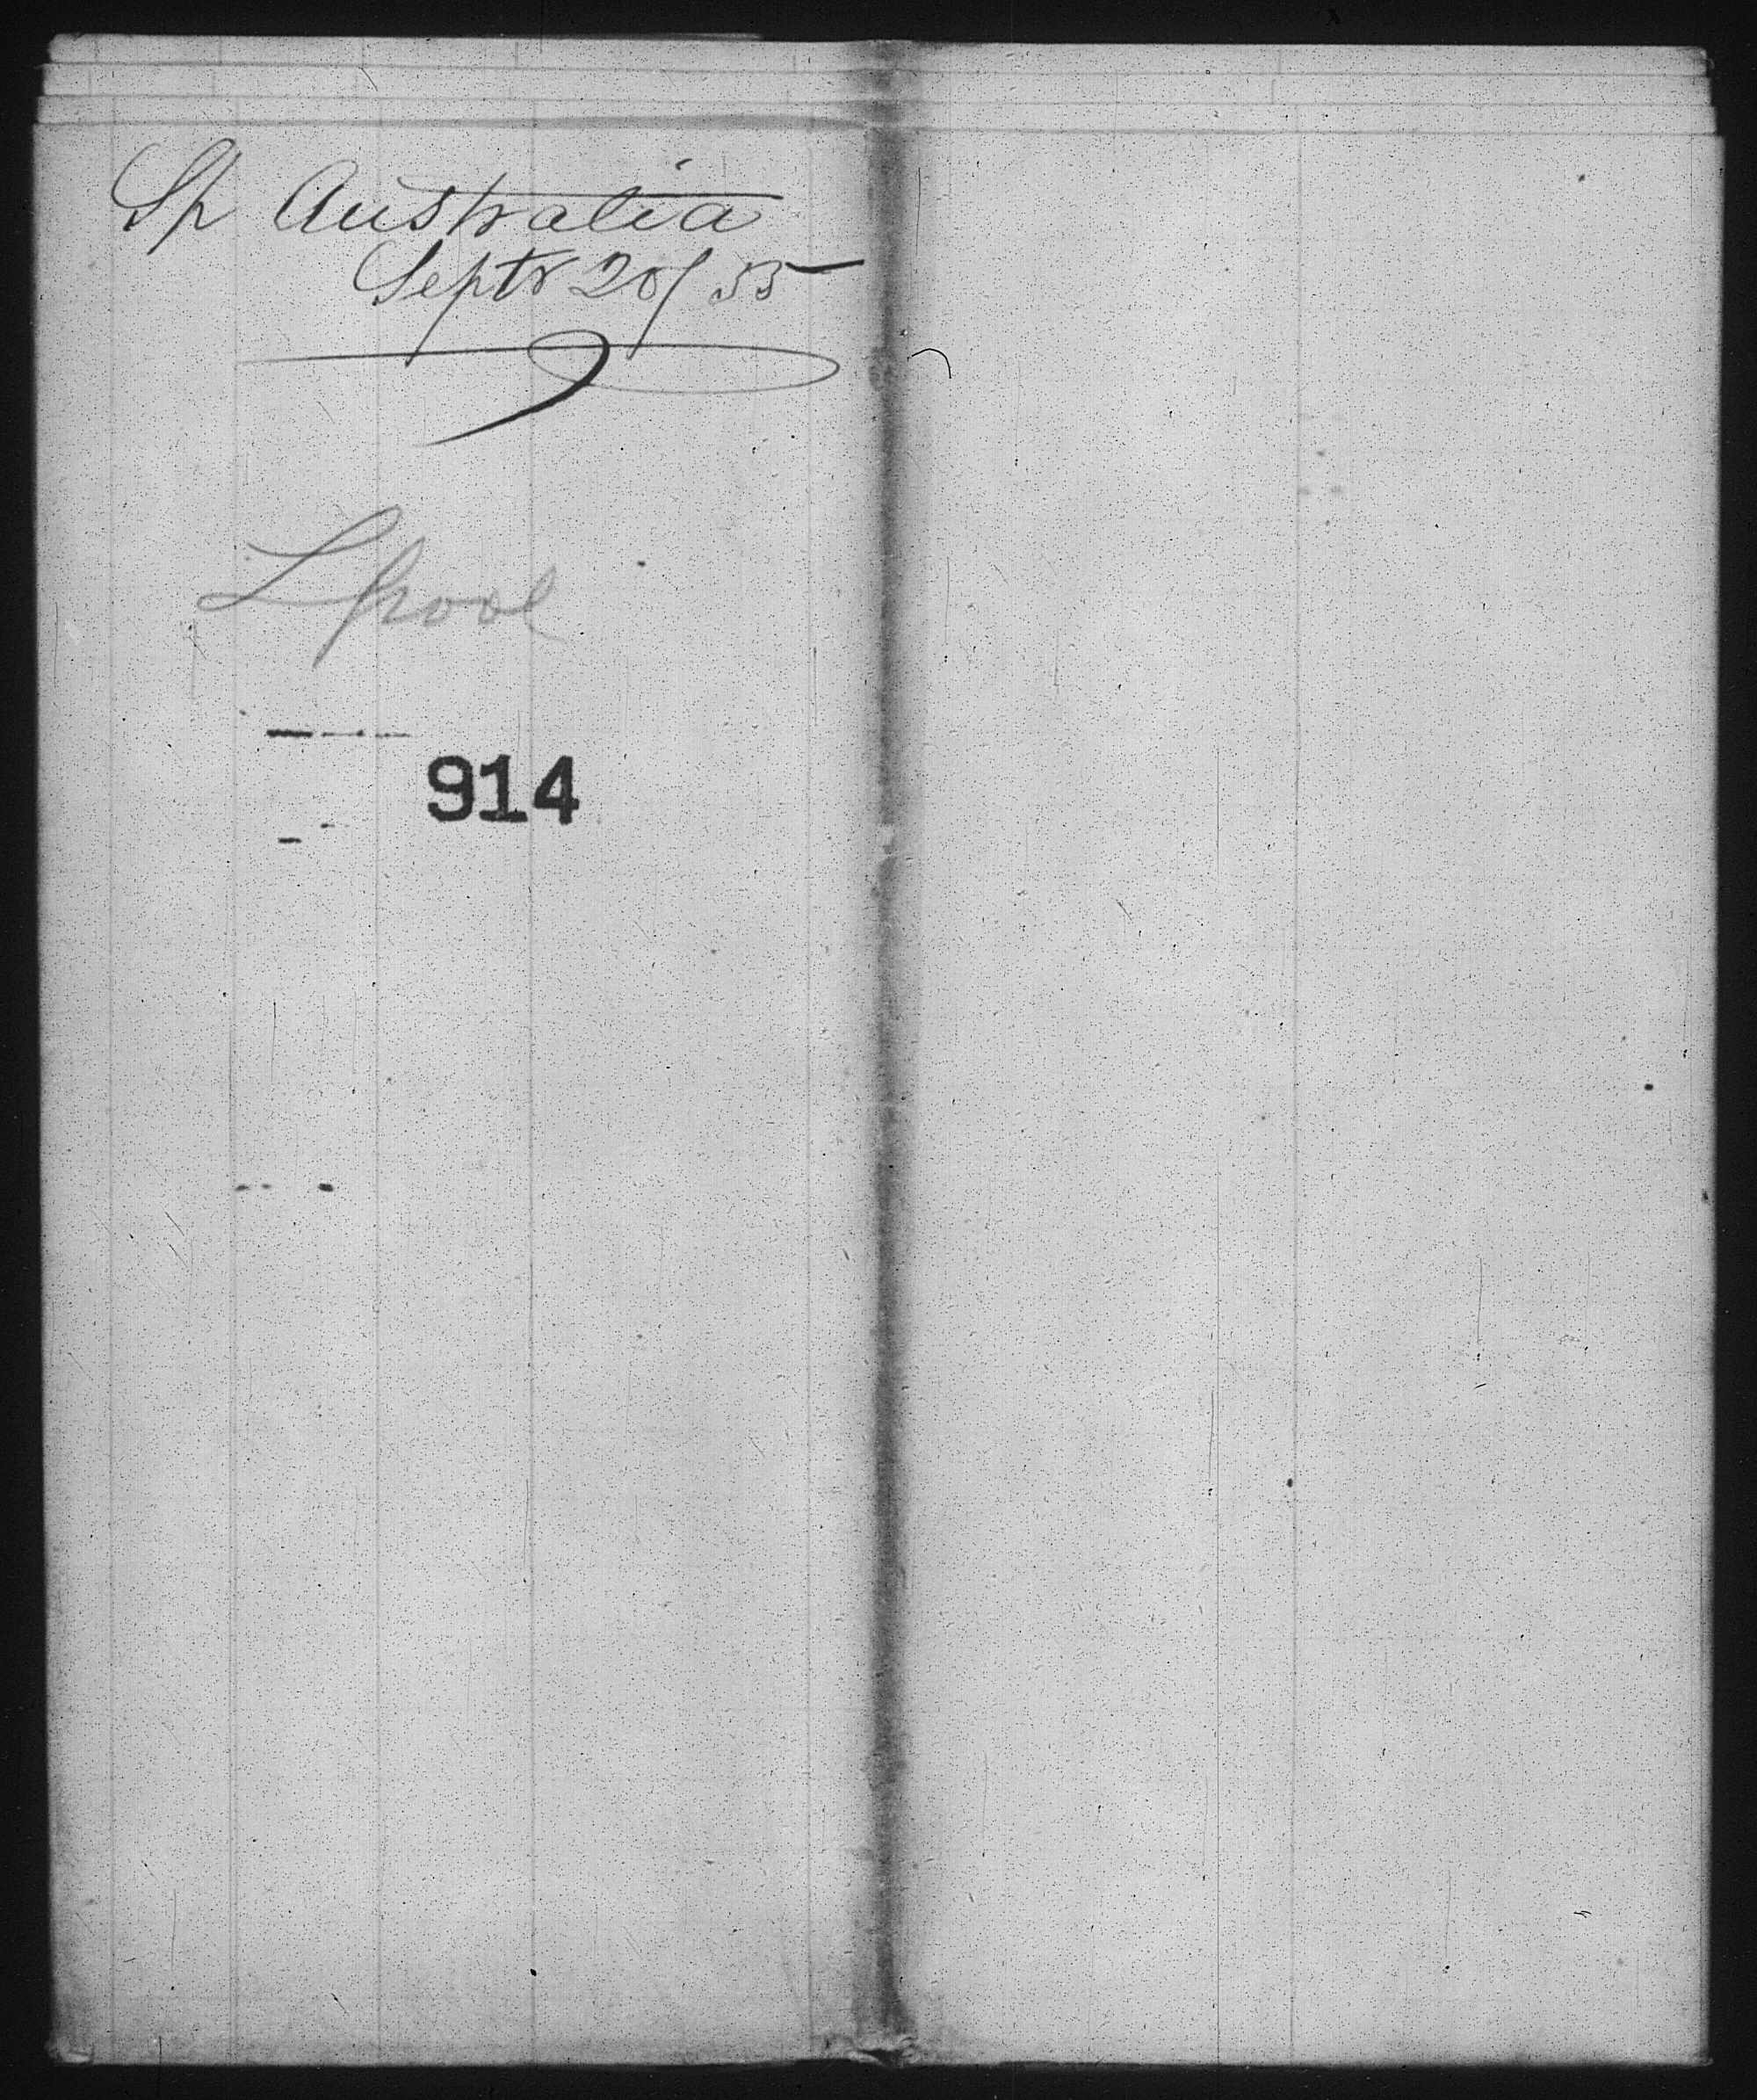 Sh Australia
Septr 20/55
Lpool
914